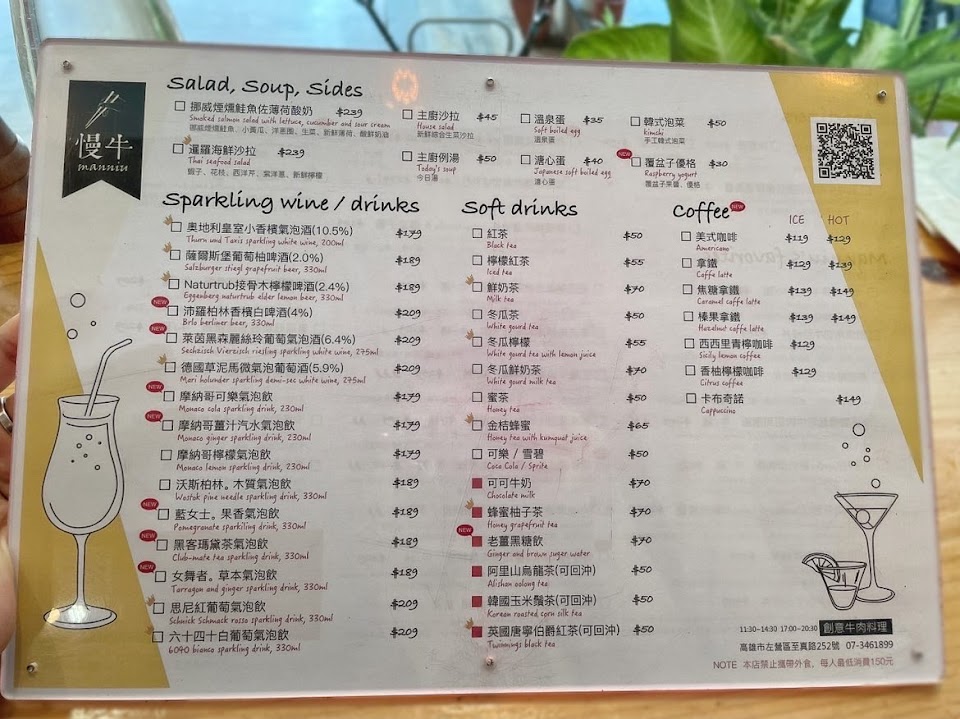 慢牛
manniu
Salad, Soup, Sides
挪威煙燻鮭魚佐薄荷酸奶 $239
Smoked salmon salad with lettuce, cucumber and sour cream
挪威煙燻鮭魚、小黃瓜、洋蔥圈、生菜、新鮮薄荷、酸鮮奶油
暹羅海鮮沙拉 $239
Thai seafood salad
蝦子、花枝、西洋芹、紫洋蔥、新鮮檸檬
主廚沙拉 $45
House salad
新鮮綜合生菜沙拉
主廚例湯 $50
Today's soup
今日湯
溫泉蛋 $35
Soft boiled egg
溫泉蛋
溏心蛋 $40
Japanese soft boiled egg
溏心蛋
韓式泡菜 $50
kimchi
手工韓式泡菜
NEW
覆盆子優格 $30
Raspberry yogurt
覆盆子果醬、優格
Sparkling wine / drinks
奧地利皇室小香檳氣泡酒(10.5%) $179
Thurn und Taxis sparkling white wine, 200ml
薩爾斯堡葡萄柚啤酒(2.0%) $189
Salzburger stiegl grapefruit beer, 330ml
Naturtrub接骨木檸檬啤酒(2.4%) $189
Eggenberg naturtrub elder lemon beer, 330ml
NEW
沛羅柏林香檳白啤酒(4%) $209
Brlo berliner beer, 330ml
NEW
萊茵黑森麗絲玲葡萄氣泡酒(6.4%) $209
Sechzisch Vierzisch riesling sparkling white wine, 275ml
德國草泥馬微氣泡葡萄酒(5.9%) $209
Mari holunder sparkling demi-sec white wine, 275ml
NEW
摩納哥可樂氣泡飲 $179
Monaco cola sparkling drink, 230ml
NEW
摩納哥薑汁汽水氣泡飲 $179
Monaco ginger sparkling drink, 230ml
摩納哥檸檬氣泡飲 $179
Monaco lemon sparkling drink, 230ml
沃斯柏林。木質氣泡飲 $189
Wostok pine needle sparkling drink, 330ml
NEW
藍女士。果香氣泡飲 $189
Pomegranate sparkiling drink, 330ml
NEW
黑客瑪黛茶氣泡飲 $189
Club-mate tea sparkling drink, 330ml
NEW
女舞者。草本氣泡飲 $189
Tarragon and ginger sparkling drink, 330ml
思尼紅葡萄氣泡飲 $209
Schuick Schmack rosso sparkling drink, 330ml
六十四十白葡萄氣泡飲 $209
6040 bianco sparkling drink, 330ml
Soft drinks
紅茶 $50
Black tea
檸檬紅茶 $55
Iced tea
鮮奶茶 $70
Milk tea
冬瓜茶 $50
White gourd tea
冬瓜檸檬 $55
White gourd tea with lemon juice
冬瓜鮮奶茶 $70
White gourd milk tea
蜜茶 $50
Honey tea
金桔蜂蜜 $65
Honey tea with kumquat juice
可樂 / 雪碧 $50
Coca Cola / Sprite
可可牛奶 $70
Chocolate milk
蜂蜜柚子茶 $70
Honey grapefruit tea
NEW
老薑黑糖飲 $70
Ginger and brown suger water
阿里山烏龍茶(可回沖) $50
Alishan oolong tea
韓國玉米鬚茶(可回沖) $50
Korean roasted corn silk tea
英國唐寧伯爵紅茶(可回沖) $50
Twinnings black tea
Coffee NEW
ICE HOT
美式咖啡 $119 $129
Americano
拿鐵 $129 $139
Caffe latte
焦糖拿鐵 $139 $149
Caramel caffe latte
榛果拿鐵 $139 $149
Hazelnut caffe latte
西西里青檸咖啡 $129
Sicily lemon coffee
香柚檸檬咖啡 $129
Citrus coffee
卡布奇諾 $149
Cappuccino
11:30~14:30 17:00~20:30 創意牛肉料理
高雄市左營區至真路252號 07-3461899
NOTE 本店禁止攜帶外食，每人最低消費150元